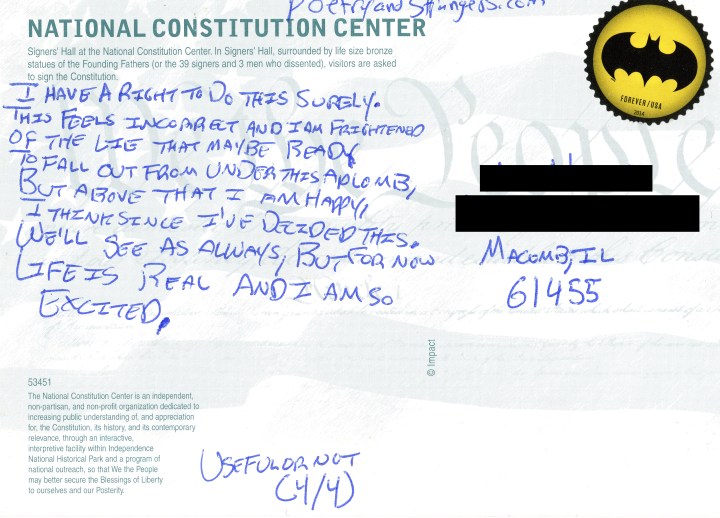 PoetryandStrangers.com
NATIONAL CONSTITUTION CENTER
Signers' Hall at the National Constitution Center. In Signers' Hall, surrounded by life size bronze
statues of the Founding Fathers (or the 39 signers and 3 men who dissented), visitors are asked
to sign the Constitution.
FOREVER/USA
2014
I HAVE A RIGHT TO DO THIS SURELY.
THIS FEELS INCORRECT AND I AM FRIGHTENED
OF THE LIE THAT MAY BE READY
TO FALL OUT FROM UNDER THIS APLOMB,
BUT ABOVE THAT I AM HAPPY,
I THINK SINCE I'VE DECIDED THIS.
WE'LL SEE AS ALWAYS, BUT FOR NOW
LIFE IS REAL AND I AM SO
EXCITED.
MACOMB, IL
61455
© Impact
53451
The National Constitution Center is an independent,
non-partisan, and non-profit organization dedicated to
increasing public understanding of, and appreciation
for, the Constitution, its history, and its contemporary
relevance, through an interactive,
interpretive facility within Independence
National Historical Park and a program of
national outreach, so that We the People
may better secure the Blessings of Liberty
to ourselves and our Posterity.
USEFUL OR NOT
(4/4)
We the People